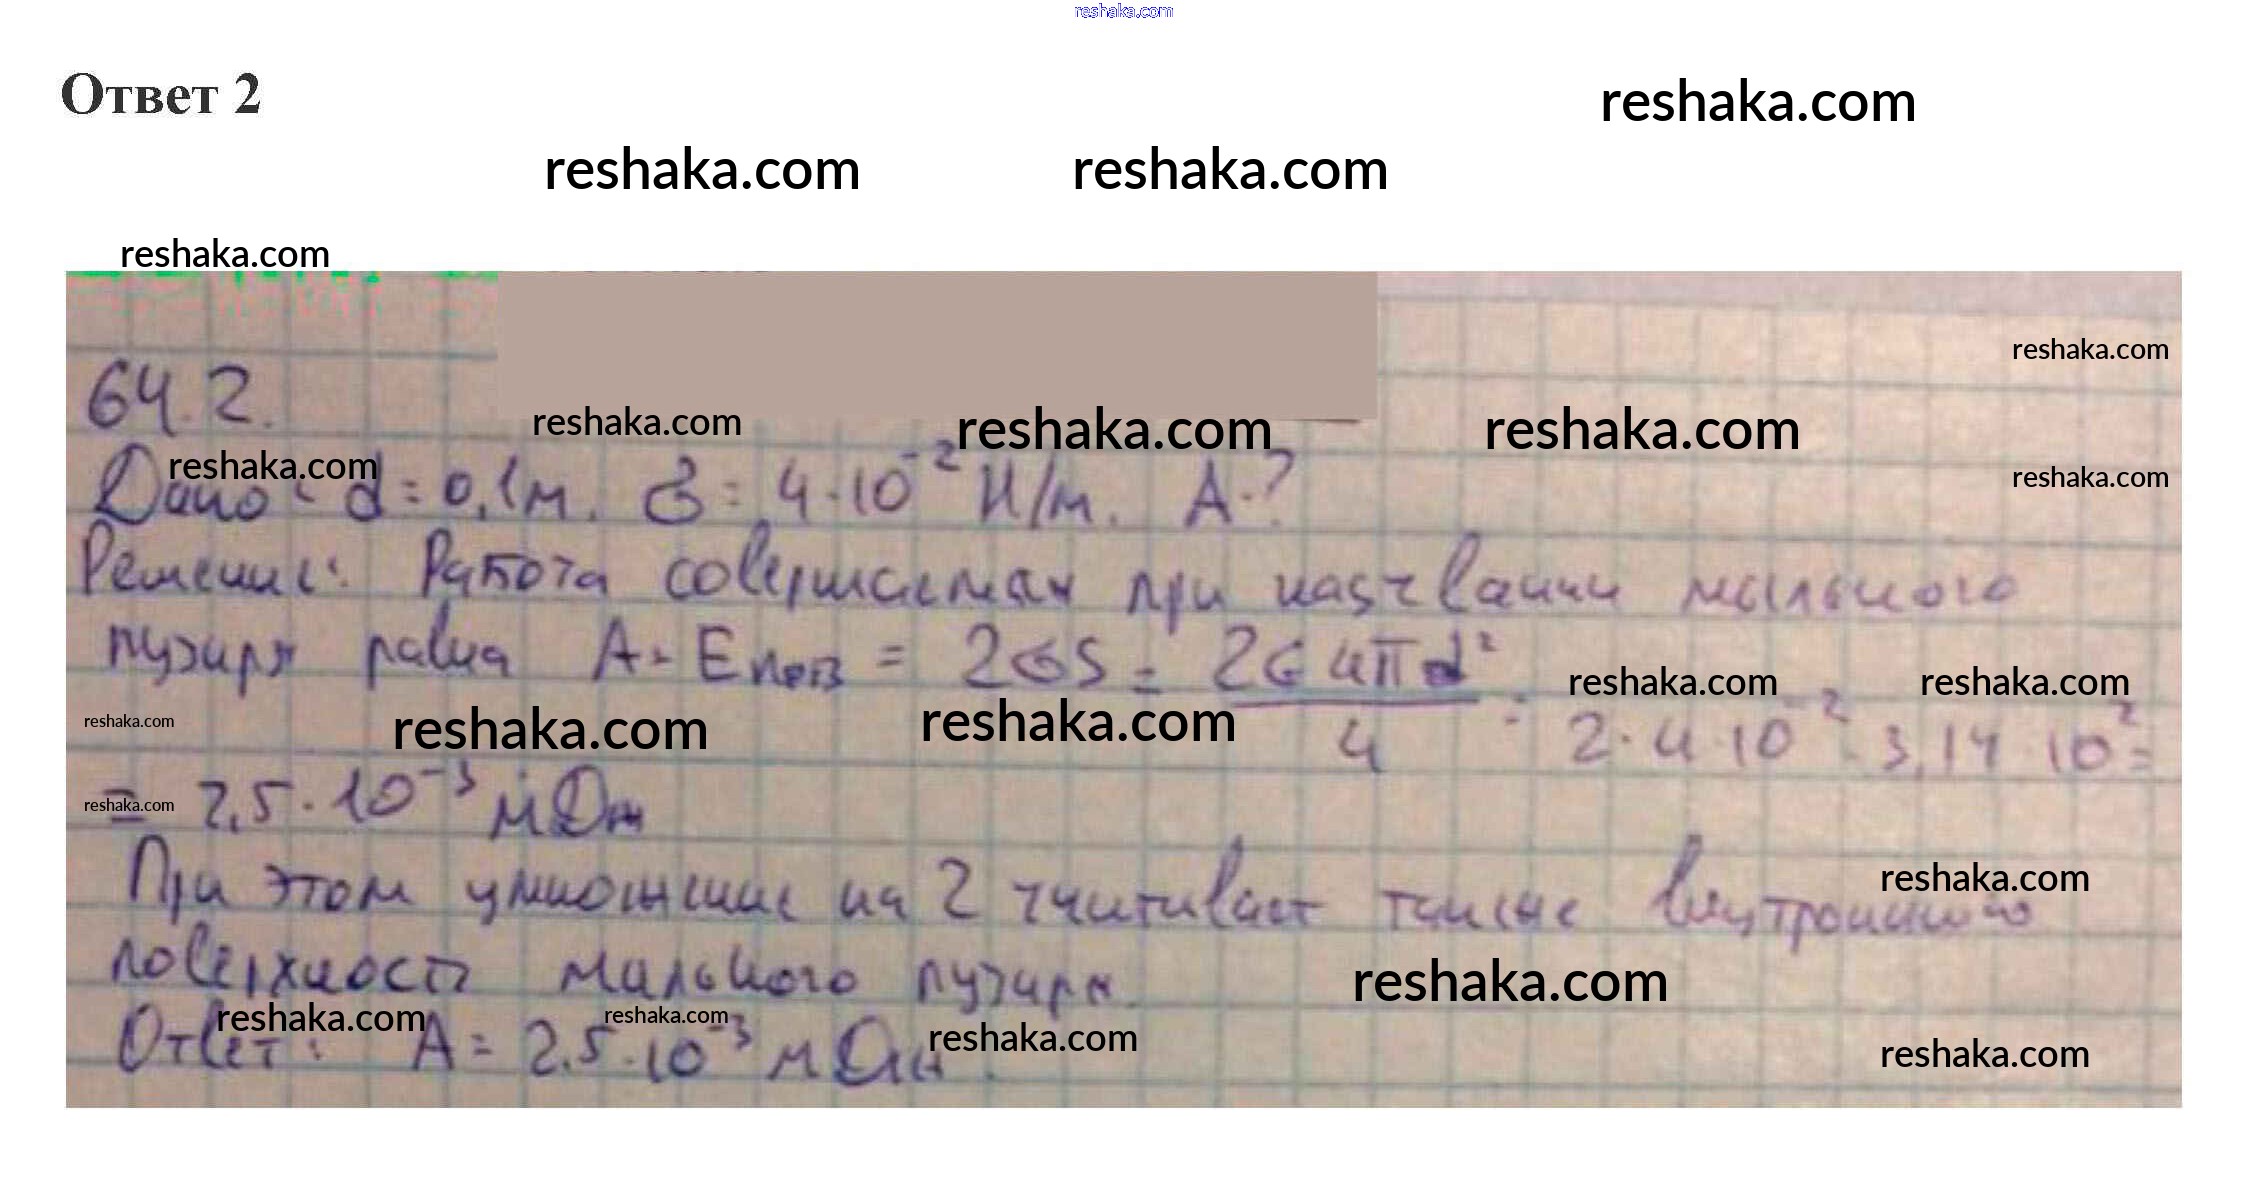 reshaka.com
Ответ 2
reshaka.com
reshaka.com reshaka.com
reshaka.com
reshaka.com
64.2.
reshaka.com reshaka.com reshaka.com
reshaka.com
reshaka.com
Дано: d = 0,1м. σ = 4·10⁻² Н/м. А-?
Решение: Работа совершаемая при мыльного
пузыря равна А = Eпов = 2σS = 2σ4πd²/4 = 2·4·10⁻²·3,14·10² =
reshaka.com reshaka.com
reshaka.com reshaka.com reshaka.com
= 2,5·10⁻³ мДж
reshaka.com
При этом умножение на 2 внутреннюю
reshaka.com
поверхность мыльного пузыря.
reshaka.com
reshaka.com reshaka.com reshaka.com
Ответ: А = 2.5·10⁻³ мДж.
reshaka.com